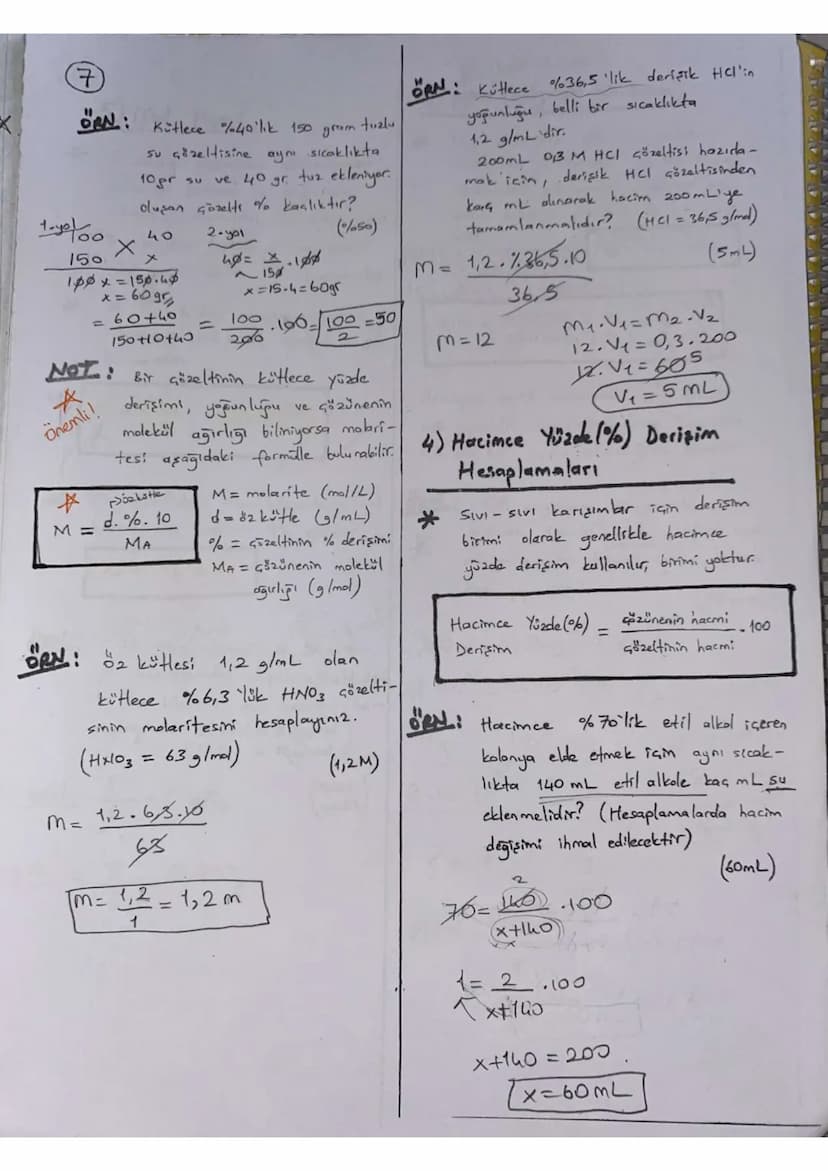 7
ÖRN: Kütlece %40'lık 150 gram tuzlu
su çözeltisine aynı sıcaklıkta
10gr su ve 40 gr. tuz ekleniyor.
oluşan çözelti % kaçlıktır?
(%50)
1.yol
100 40
150 x
100 x = 150.40
x = 60gr
2.yol
40 = x/150 . 100
x = 15.4 = 60gr
= 60+40 / 150+10+40 = 100/200 . 100 = 100/2 = 50
NOT: Bir çözeltinin kütlece yüzde
Önemli!
derişimi, yoğunluğu ve çözünenin
molekül ağırlığı biliniyorsa molari-
tesi aşağıdaki formülle bulunabilir.
özkütle
M = d.%.10 / MA
M = molarite (mol/L)
d = öz kütle (g/mL)
% = çözeltinin % derişimi
MA = çözünenin molekül
ağırlığı (g/mol)
ÖRN: Öz kütlesi 1,2 g/mL olan
kütlece %6,3'lük HNO3 çözelti-
sinin molaritesini hesaplayınız.
(HNO3 = 63 g/mol) (1,2M)
m = 1,2 . 6,3 . 10 / 63
m = 1,2/1 = 1,2 m
ÖRN: Kütlece %36,5'lik derişik HCl'in
yoğunluğu, belli bir sıcaklıkta
1,2 g/mL'dir.
200mL 0,3 M HCl çözeltisi hazırla-
mak için, derişik HCl çözeltisinden
kaç mL alınarak hacim 200 mL'ye
tamamlanmalıdır? (HCl = 36,5 g/mol)
(5mL)
M = 1,2 . %36,5 . 10 / 36,5
m = 12
m1.V1 = m2.V2
12.V1 = 0,3.200
12.V1 = 60 5
V1 = 5 mL
4) Hacimce Yüzde(%) Derişim
Hesaplamaları
* Sıvı-sıvı karışımlar için derişim
birimi olarak genellikle hacimce
yüzde derişim kullanılır, birimi yoktur.
Hacimce Yüzde(%) Derişim = çözünenin hacmi / çözeltinin hacmi . 100
ÖRN: Hacimce %70'lik etil alkol içeren
kolonya elde etmek için aynı sıcak-
lıkta 140 mL etil alkole kaç mL su
eklenmelidir? (Hesaplamalarda hacim
değişimi ihmal edilecektir)
(60mL)
2
70 = 140 / x+140 . 100
1 = 2 / x+140 . 100
x+140 = 200.
x = 60 mL